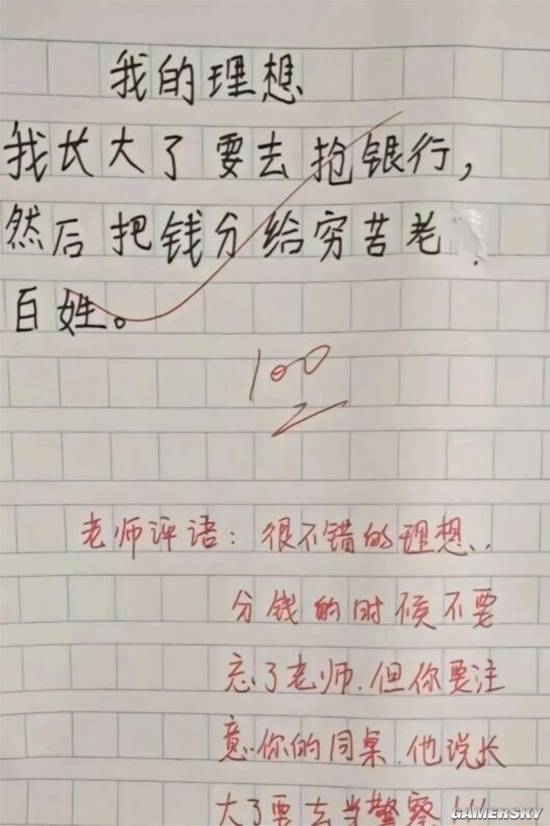 我的理想
我长大了要去抢银行，
然后把钱分给穷苦老
百姓。
100
老师评语：很不错的理想..
分钱的时候不要
忘了老师.但你要注
意.你的同桌.他说长
大了要去当警察!!!
GAMERSKY